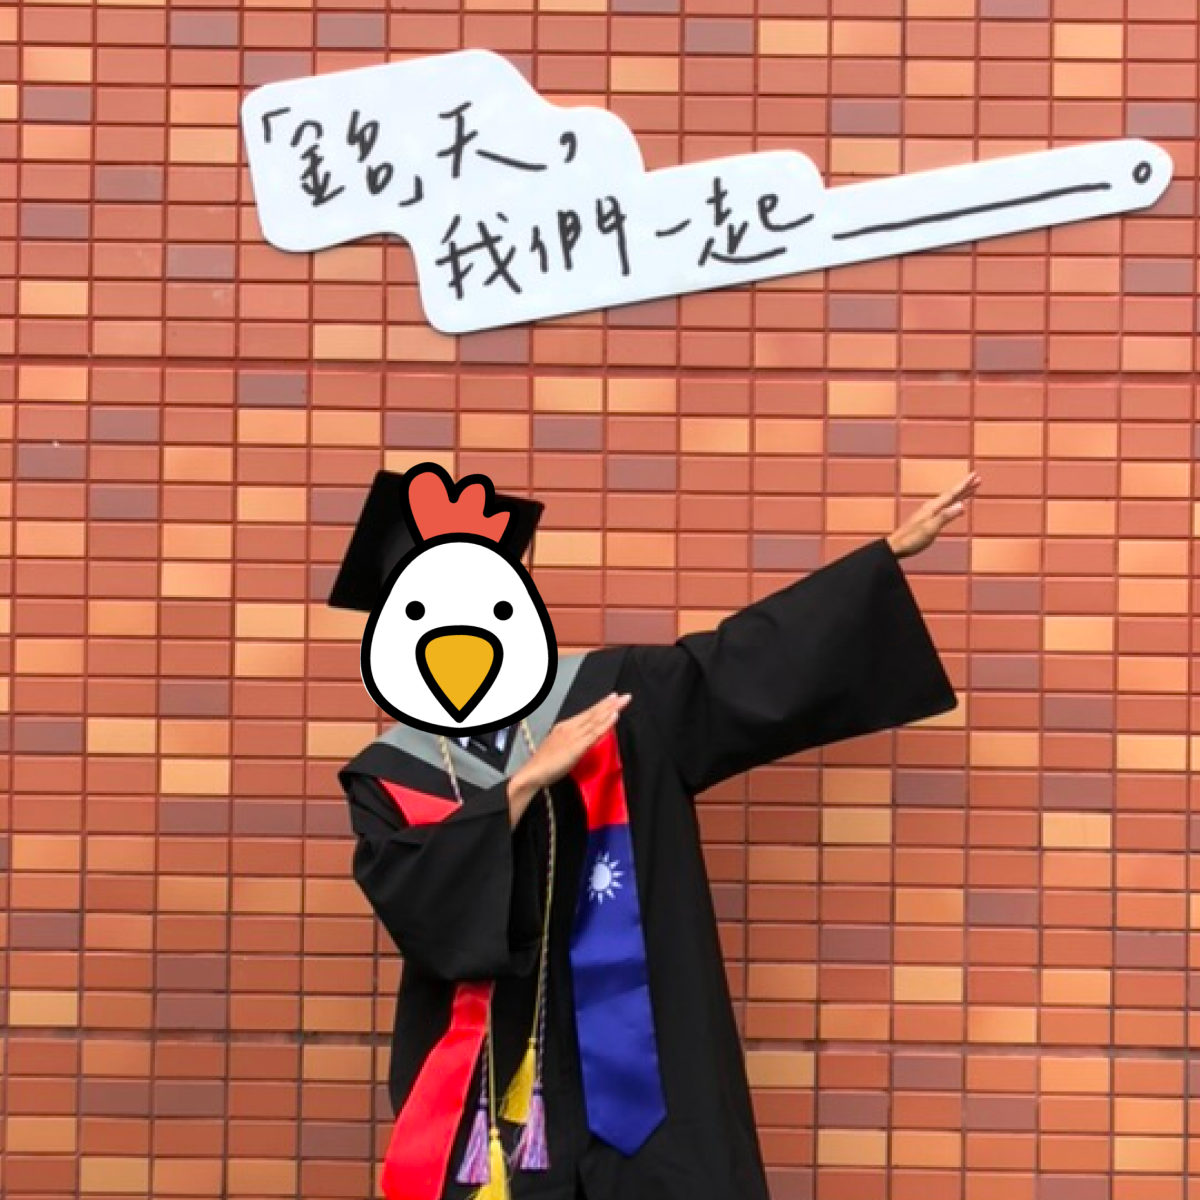 「銘」天，
我們一起______。